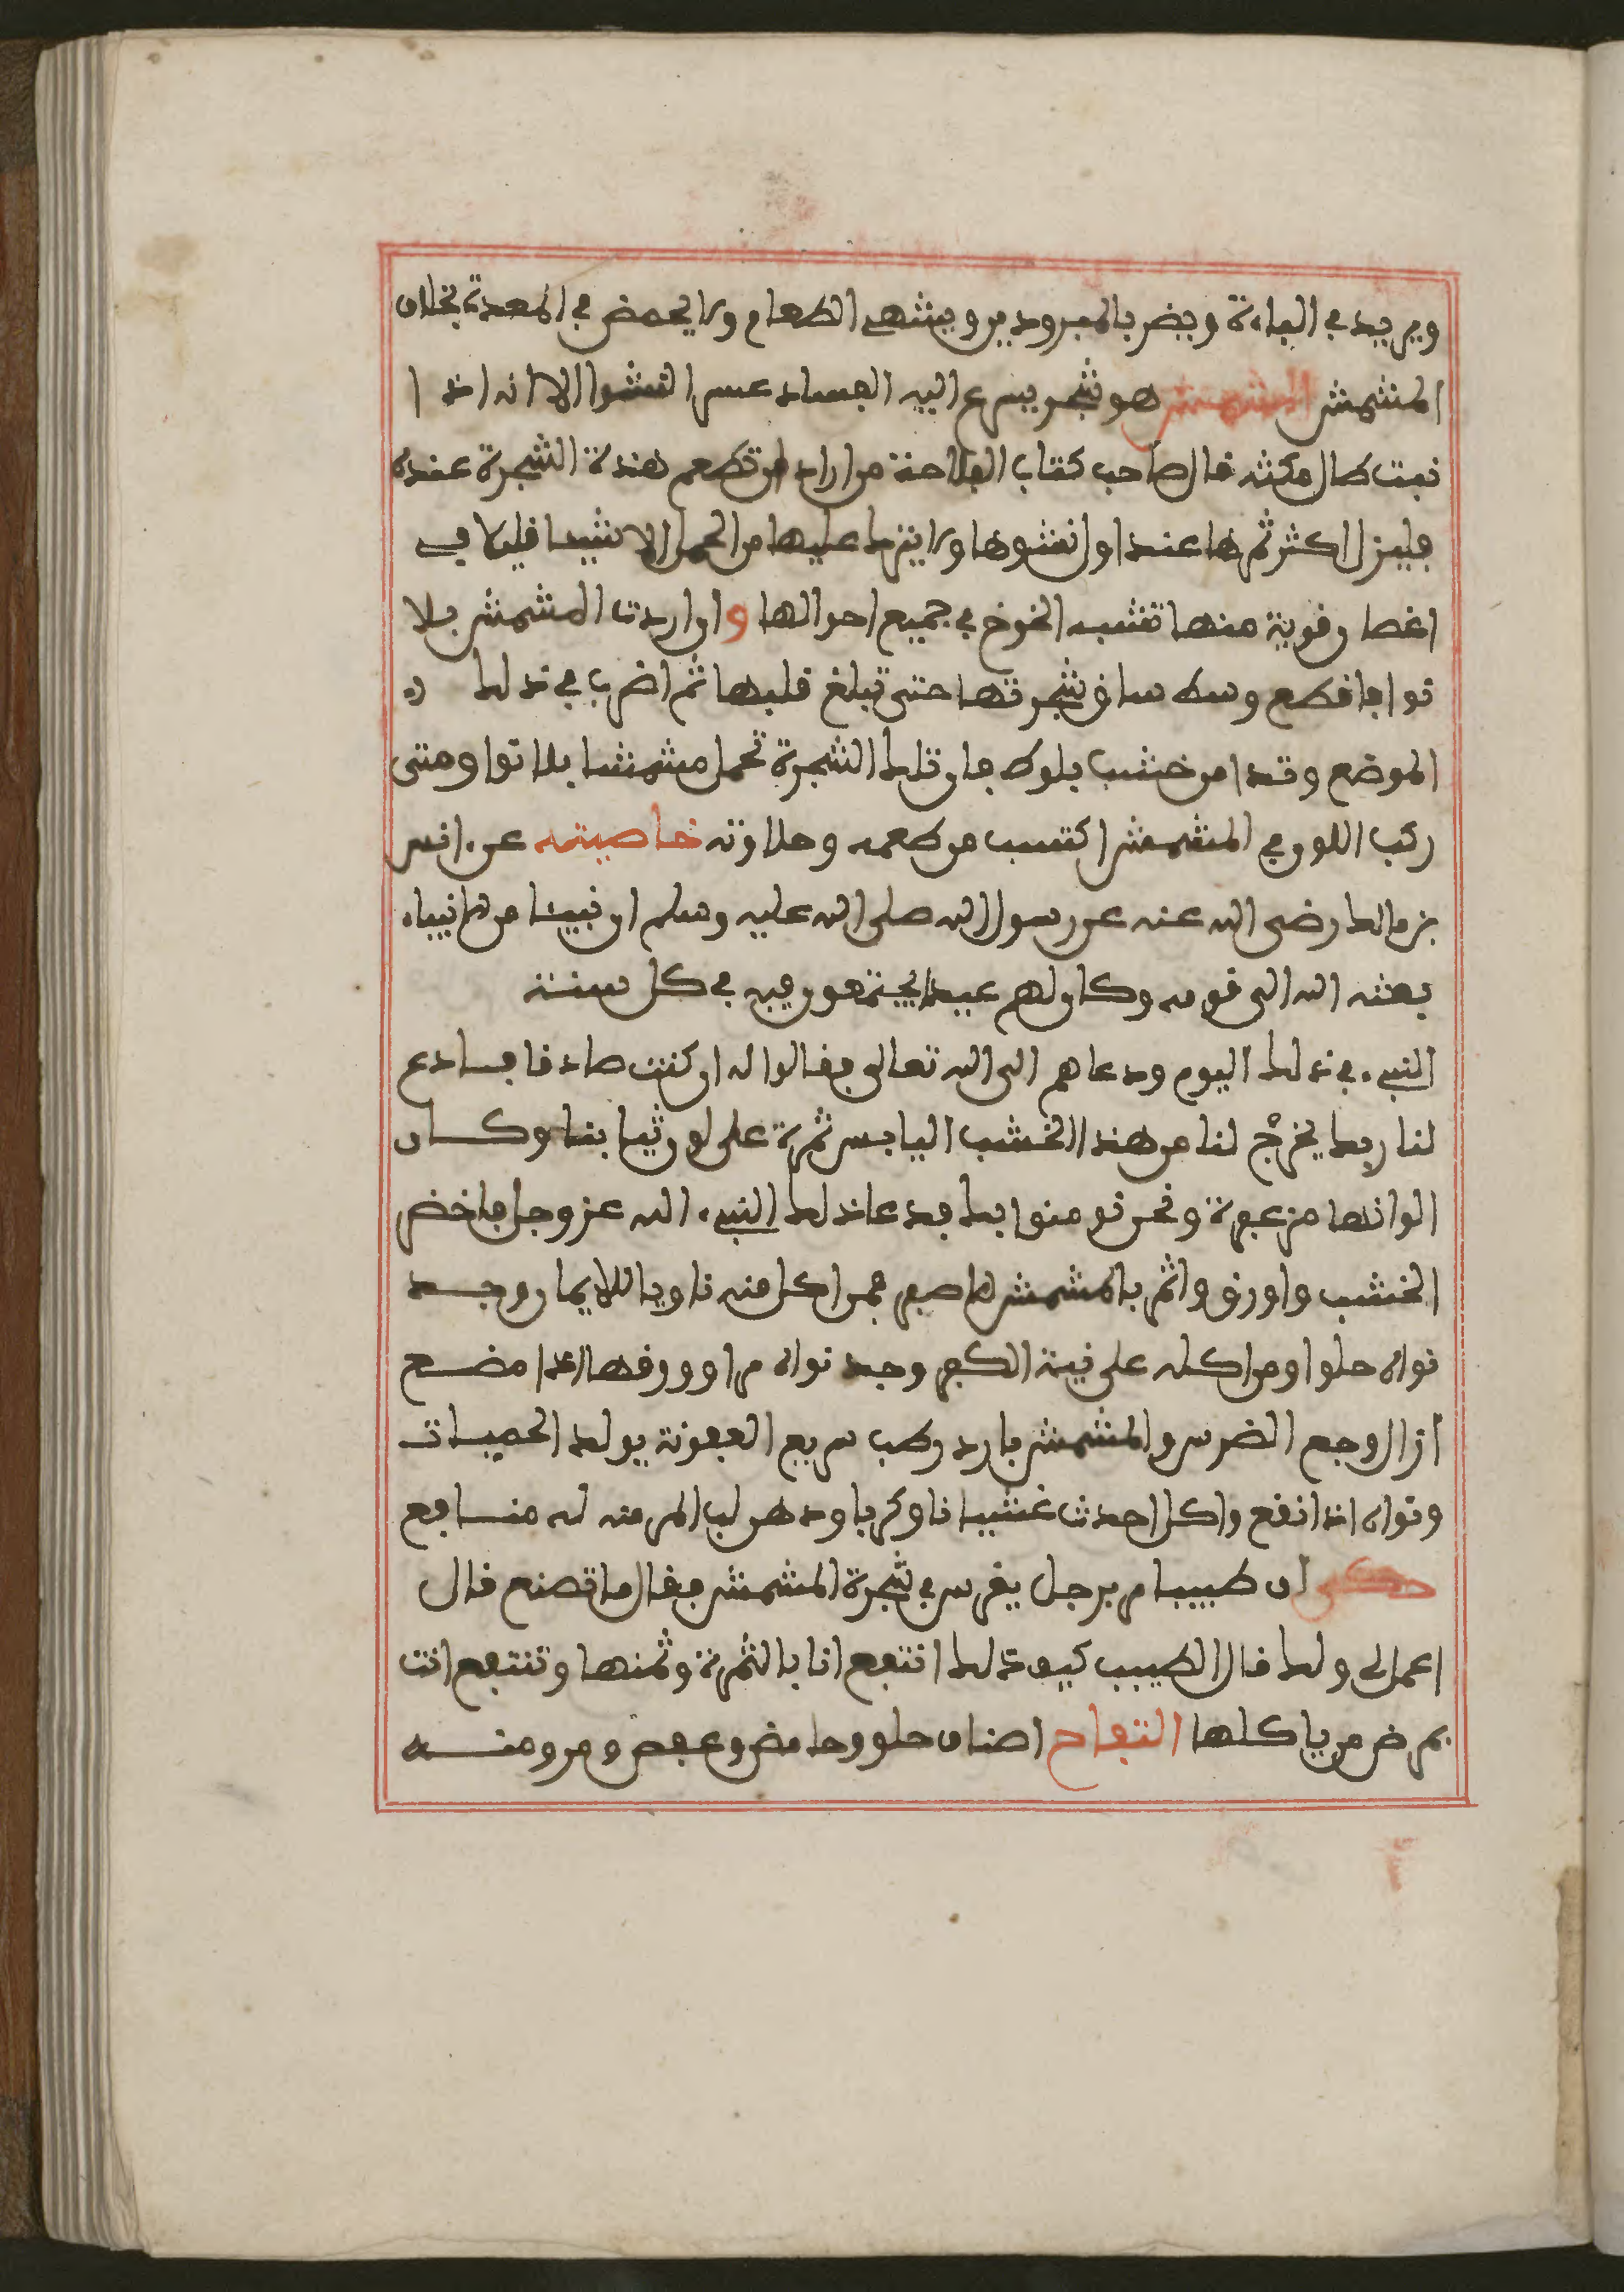 ويزيد في الباءة ويضر بالمبرودين ويشهي الطعام ولا يحمض في المعدة بخلاف
المشمش المشمش هو شجر يسرع اليه الفساد عسر النشوا الا انه اذا
نبت طال مكثه قال صاحب كتاب الفلاحة من اراد ان تطعم هذه الشجرة عنده
فليزل اكثر ثمرها عند اول نشوها ولا ينزل عليها من الحمل الا شيئا قليلا في
اغصان قوية منها تشبه الخوخ في جميع احوالها وان اردت المشمش بلا
نوا فاقطع وسط ساق شجرتها حتى تبلغ قلبها ثم اضرب في ذلك
الموضع وتدا من خشب بلوط فان تلك الشجرة تحمل مشمشا بلا نوا ومتى
ركب اللوز في المشمش اكتسب من طعمه وحلاوته خاصيته عن انس
بن مالك رضى الله عنه عن رسول الله صلى الله عليه وسلم ان نبيئا من الانبياء
بعثه الله الى قومه وكان لهم عيدا يجتمعون فيه في كل سنة
النبيء في ذلك اليوم ودعاهم الى الله تعالى فقالوا له ان كنت صادقا فادع
لنا ربك يخرج لنا من هذا الخشب اليابس ثمرة على لون ثيابنا وكان
الوانها مزعفرة ونحن نومنوا بك فدعا ذلك النبيء الله عز وجل فاخضر
الخشب واورق واثمر بالمشمش الاصفر فمن اكل منه ناويا للايمان وجد
نواه حلوا ومن اكله على نية الكفر وجد نواه مرا وورقها اذا مضح
ازال وجع الضرس والمشمش بارد رطب سريع العفونة يولد الحميات
ونواه اذا انقع واكل احدث غشيانا وكربا ودهن لب المر منه له منافع
حكى ان طبيبا مر برجل يغرس في شجرة المشمش فقال ما تصنع قال
اعمل لي ولك قال الطبيب كيف ذلك انتفع انا بالثمرة وثمنها وتنتفع انت
بمرض من ياكلها التفاح اصناف حلو وحامض وعفص ومر ومنه